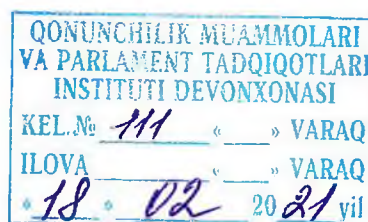 QONUNCHILIK MUAMMOLARI
VA PARLAMENT TADQIQOTLARI
INSTITUTI DEVONXONASI
KEL.№ 111 « » VARAQ
ILOVA « » VARAQ
« 18 » 02 20 21 yil